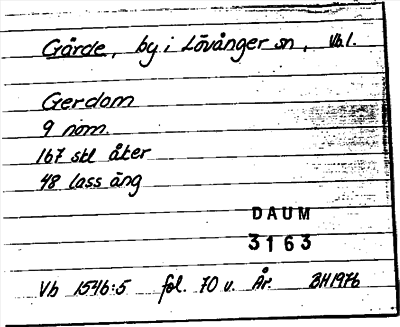 Gärde, by i Lövånger sn, Vb l.
Gerdom
9 nom.
167 skl åker
48 lass äng
DAUM
3163
Vb 1546:5 fol. 70 v. År. BH1976